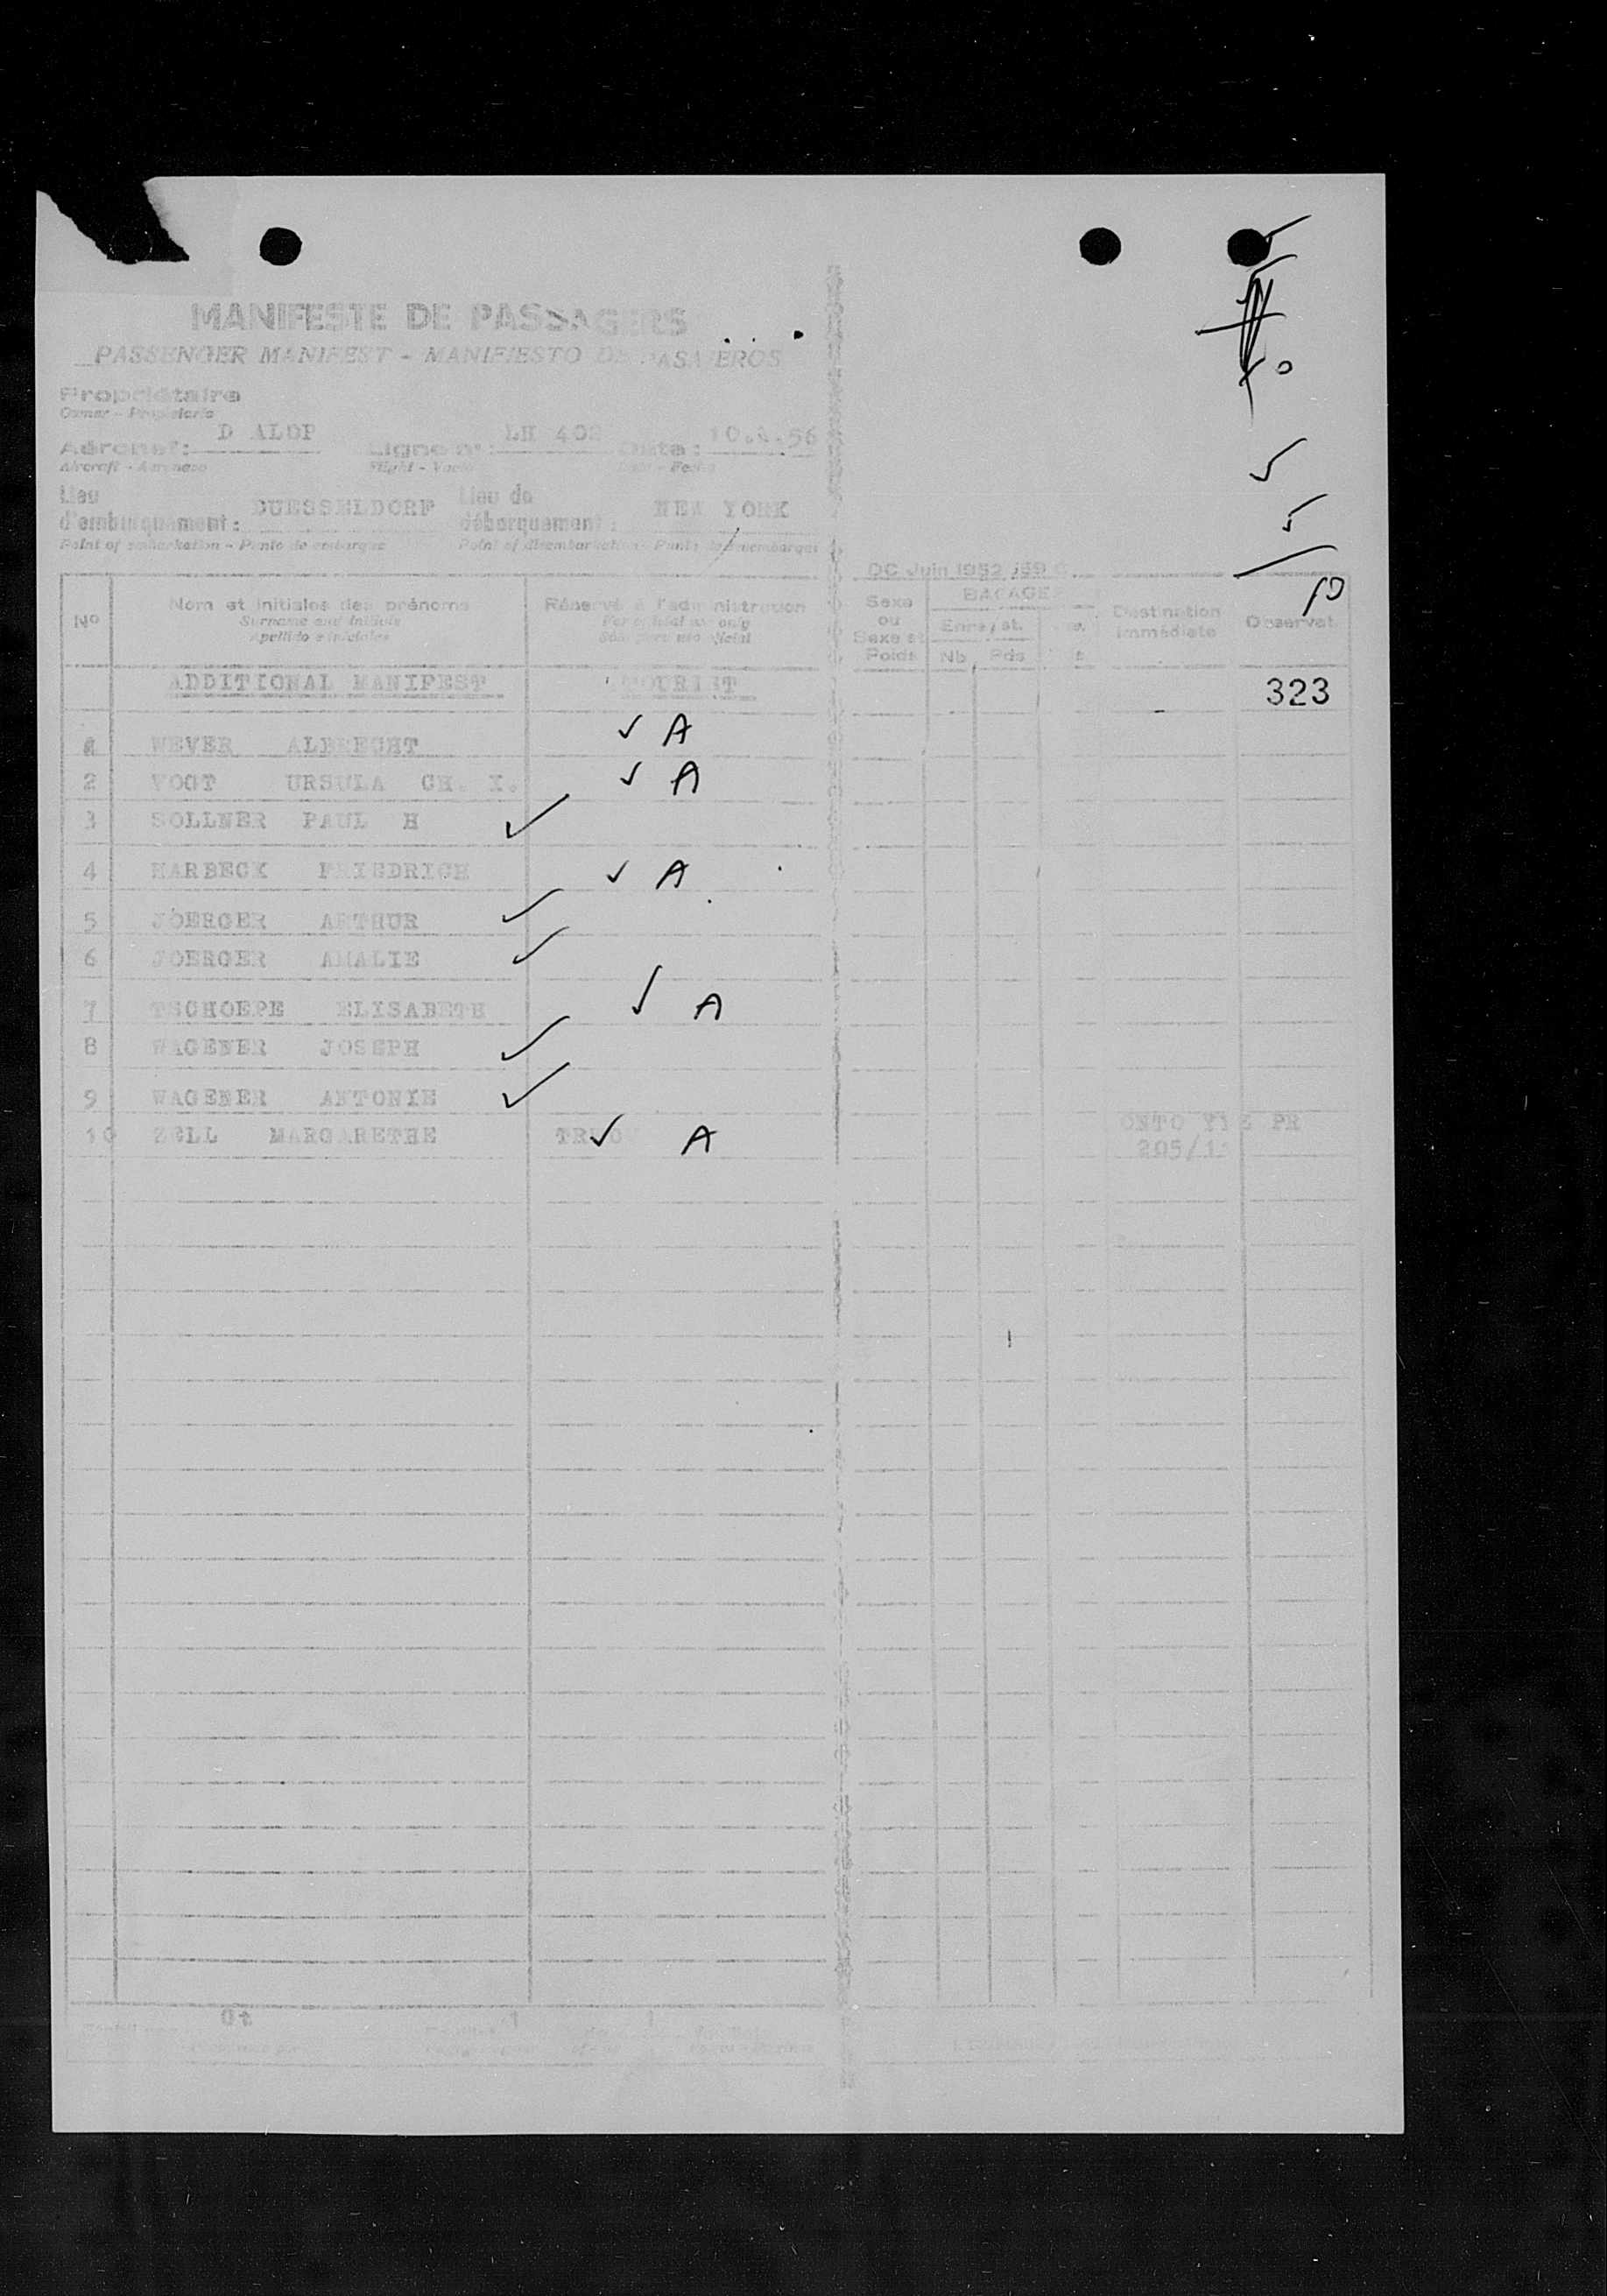 MANIFESTE DE PASSAGERS
PASSENGER MANIFEST - MANIFIESTO DE PASAJEROS
Propriétaire
Owner - Propietario
Aéronef: D ALOP Ligne nº: LH 402 Date: 56
Aircraft - Aeronave Flight - Vuelo Fecha
Lieu d'embarquement: DUESSELDORF Lieu de débarquement: NEW YORK
Point of embarkation - Punto de embarque Point of disembarkation - Punto
5
5
10
OC Juin 1952
Nº Nom et initiales des prénoms Réservé à l'administration Sexe ou Sexe et Poids BAGAGES Destination immédiate Observat.
Surname and initials For official use only Enregist.
Apellido e iniciales Sólo para uso oficial Nb Pds
ADDITIONAL MANIFEST TOURIST 323
WEVER ALBRECHT ✓ A
2 VOGT URSULA CH. I. ✓ A
3 SOLLNER PAUL H ✓
4 HARBECK FRIEDRICH ✓ A
5 JOERGER ARTHUR ✓
6 JOERGER AMALIE ✓
7 TSCHOEPE ELISABETH ✓ A
8 WAGENER JOSEPH ✓
9 WAGENER ANTONIE ✓
10 ZELL MARGARETHE ✓ A ONTO PR
205/11